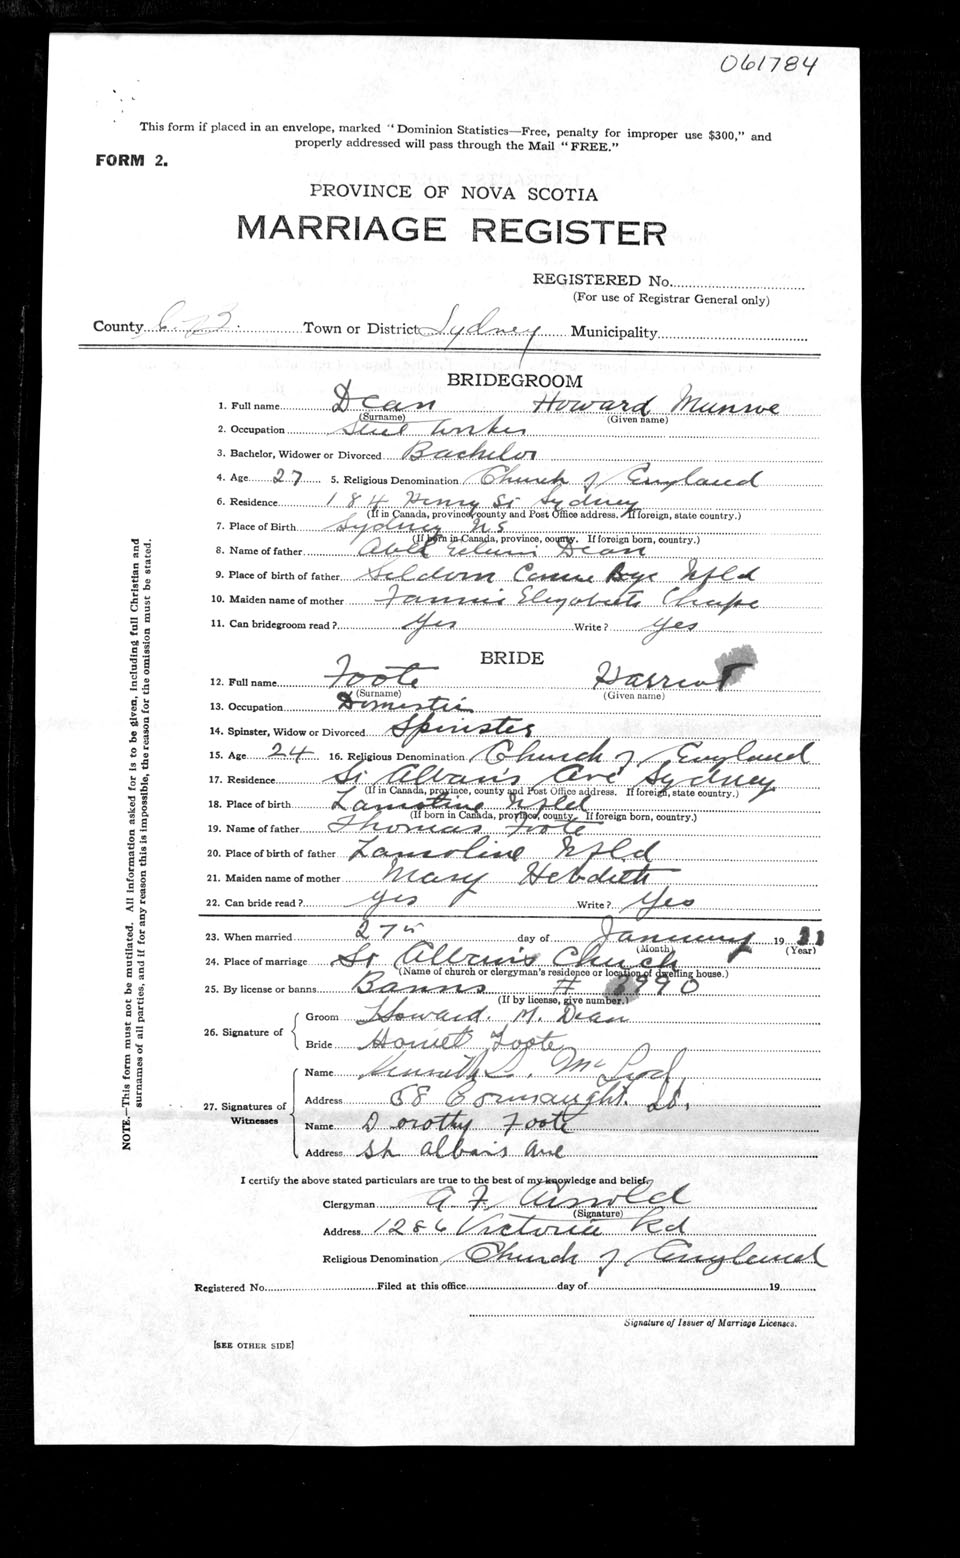 061784
This form if placed in an envelope, marked "Dominion Statistics—Free, penalty for improper use $300," and
properly addressed will pass through the Mail "FREE."
FORM 2.
PROVINCE OF NOVA SCOTIA
MARRIAGE REGISTER
REGISTERED No.
(For use of Registrar General only)
County C. B. Town or District Sydney Municipality
BRIDEGROOM
1. Full name Dean Howard Munroe
(Surname) (Given name)
2. Occupation Steel Worker
3. Bachelor, Widower or Divorced Bachelor
4. Age 27 5. Religious Denomination Church of England
6. Residence 184 Henry St Sydney
(If in Canada, province, county and Post Office address. If foreign, state country.)
7. Place of Birth Sydney N.S
(If born in Canada, province, county. If foreign born, country.)
8. Name of father Abel Dean
9. Place of birth of father Seldom Come Bye Nfld
10. Maiden name of mother Fannie Elizabeth
11. Can bridegroom read? Yes Write? Yes
BRIDE
12. Full name Foote Harriet
(Surname) (Given name)
13. Occupation Domestic
14. Spinster, Widow or Divorced Spinster
15. Age 24 16. Religious Denomination Church of England
17. Residence St Albans Ave Sydney
(If in Canada, province, county and Post Office address. If foreign, state country.)
18. Place of birth Lamoline Nfld
(If born in Canada, province, county. If foreign born, country.)
19. Name of father Thomas Foote
20. Place of birth of father Lamoline Nfld
21. Maiden name of mother Mary Hebditt
22. Can bride read? Yes Write? Yes
23. When married 27th day of January 19
(Month) (Year)
24. Place of marriage St Albans Church
(Name of church or clergyman's residence or location of dwelling house.)
25. By license or banns Banns # 990
(If by license, give number.)
26. Signature of Groom Howard. M. Dean
Bride Harriet Foote
27. Signatures of Witnesses
Name Kenneth McLeod
Address 68 Connaught. St.
Name Dorothy Foote
Address St Albans Ave
I certify the above stated particulars are true to the best of my knowledge and belief.
Clergyman A. F. Arnold
(Signature)
Address 1286 Victoria Rd
Religious Denomination Church of England
Registered No. Filed at this office day of 19
Signature of Issuer of Marriage Licenses.
[SEE OTHER SIDE]
NOTE.—This form must not be mutilated. All information asked for is to be given, including full Christian and
surnames of all parties, and if for any reason this is impossible, the reason for the omission must be stated.